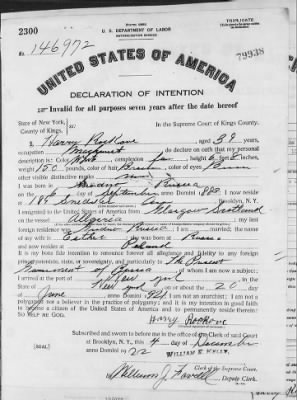 TRIPLICATE
2300
U. S. DEPARTMENT OF LABOR
NATURALIZATION SERVICE
No. 146972
79938
UNITED STATES OF AMERICA
DECLARATION OF INTENTION
Invalid for all purposes seven years after the date hereof
State of New York,
County of Kings.
ss:
In the Supreme Court of Kings County.
I, Harry, aged 39 years,
occupation, do declare on oath that my personal
description is: Color White, complexion fair, height 5 feet 8 inches,
weight 150 pounds, color of hair Brown, color of eyes Brown
other visible distinctive marks none
I was born in Russia
on the day of September, anno Domini 1883; I now reside
at 189 Snediker Ave, Brooklyn, N.Y.
I emigrated to the United States of America from Glasgow Scotland
on the vessel Algeria; my last
foreign residence was Russia; I am married; the name
of my wife is Esther; she was born at Russia
It is my bona fide intention to renounce forever all allegiance and fidelity to any foreign
prince, potentate, state, or sovereignty, and particularly to The Present
Government of Russia, of whom I am now a subject;
I arrived at the port of New York, in the
State of New York, on or about the 20 day
of June, anno Domini; I am not an anarchist; I am not a
polygamist nor a believer in the practice of polygamy; and it is my intention in good faith
to become a citizen of the United States of America and to permanently reside therein:
SO HELP ME GOD.
Harry
Subscribed and sworn to before me in the office of the Clerk of said Court
at Brooklyn, N.Y., this 4 day of December
anno Domini 1922
[SEAL]
WILLIAM E. KELLY,
Clerk of the Supreme Court.
Deputy Clerk.